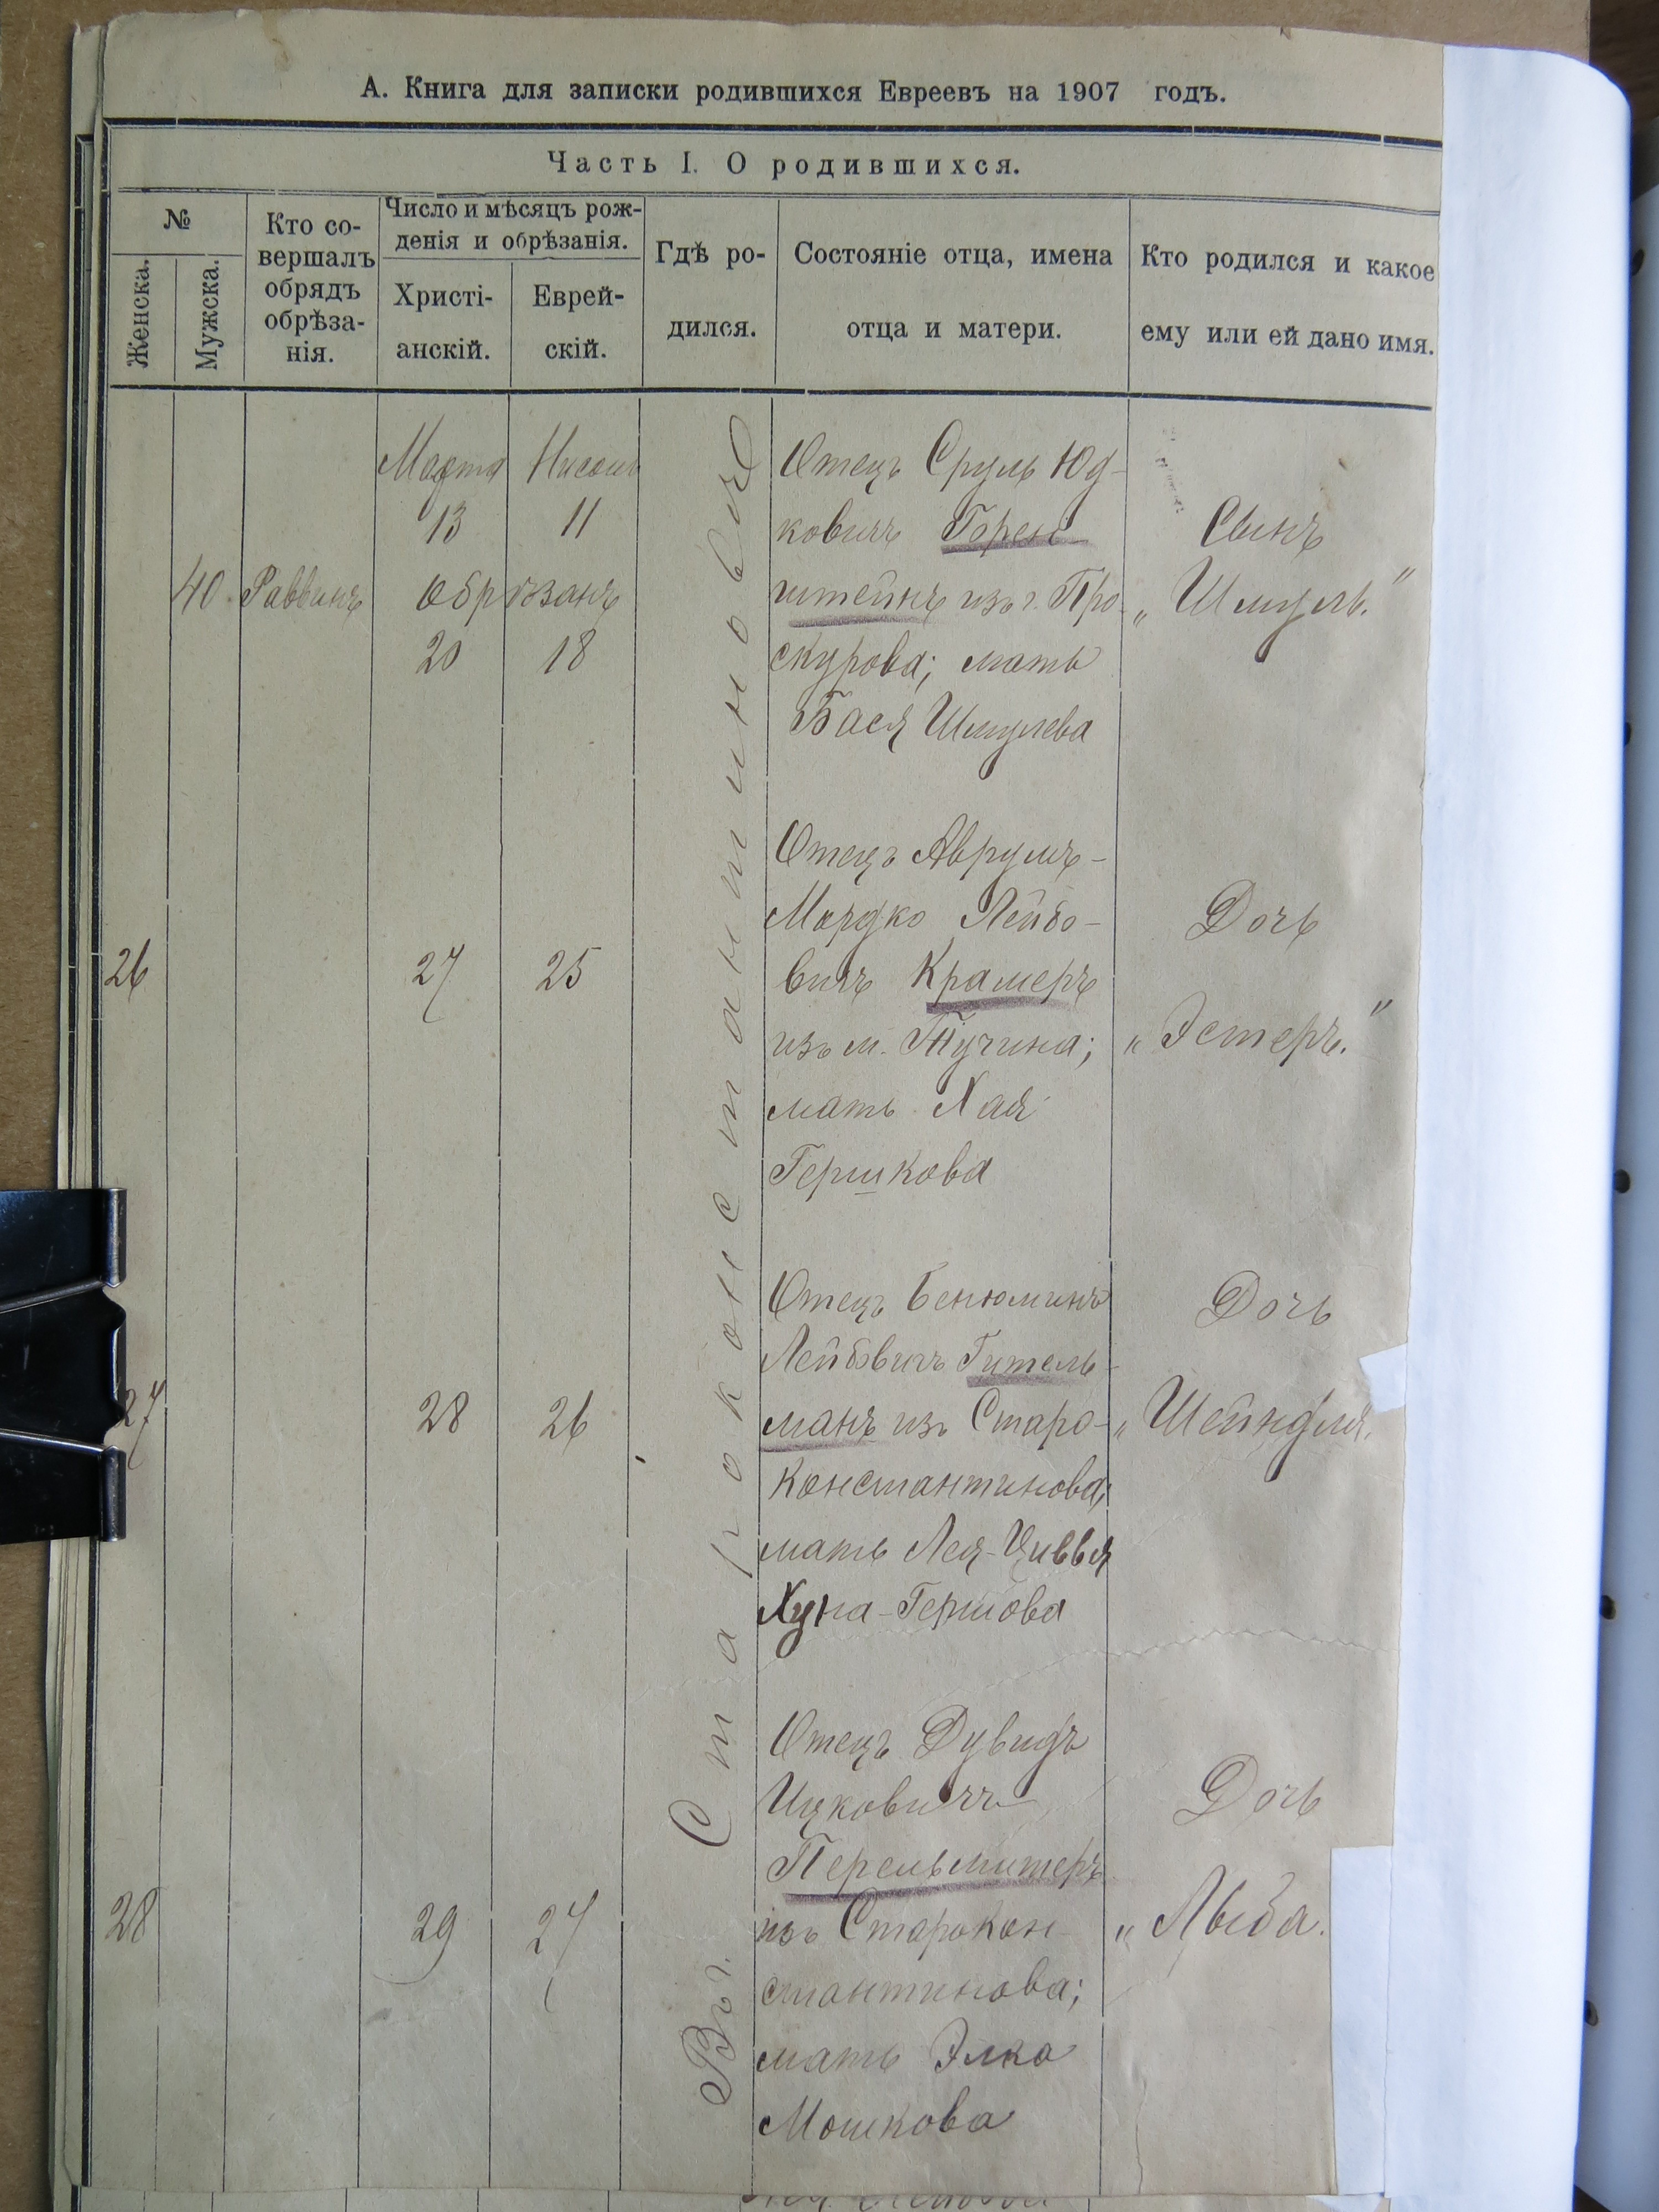 А. Книга для записки родившихся Евреевъ на 1907 годъ.
Часть I. О родившихся.
№
Женска.
Мужска.
Кто со-
вершалъ
обрядъ
обрѣза-
нія.
Число и мѣсяцъ рож-
денія и обрѣзанія.
Христі-
анскій.
Еврей-
скій.
Гдѣ ро-
дился.
Состояніе отца, имена
отца и матери.
Кто родился и какое
ему или ей дано имя.
Въ г. Староконстантиновѣ
40
Раввинъ
Марта
13
Нисонъ
11
Обрѣзанъ
20
18
Отецъ Сруль Юд-
ковичъ Горен-
штейнъ изъ г. Про-
скурова; мать
Бася Шмулева
Сынъ
„Шмуль."
26
27
25
Отецъ Аврумъ-
Мордко Лейбо-
вичъ Крамеръ
изъ м. Тучина;
мать Хая
Гершкова
Дочь
„Эстеръ."
27
28
26
Отецъ Бенюминъ
Лейбовичъ Гитель-
манъ изъ Старо-
константинова;
мать Лея-Цивья
Хуна-Гершова
Дочь
„Шейндля.
28
29
27
Отецъ Дувидъ
Ицковичъ
Перельмитеръ
изъ Старокон-
стантинова;
мать Элка
Мошкова
Дочь
„Лыба.